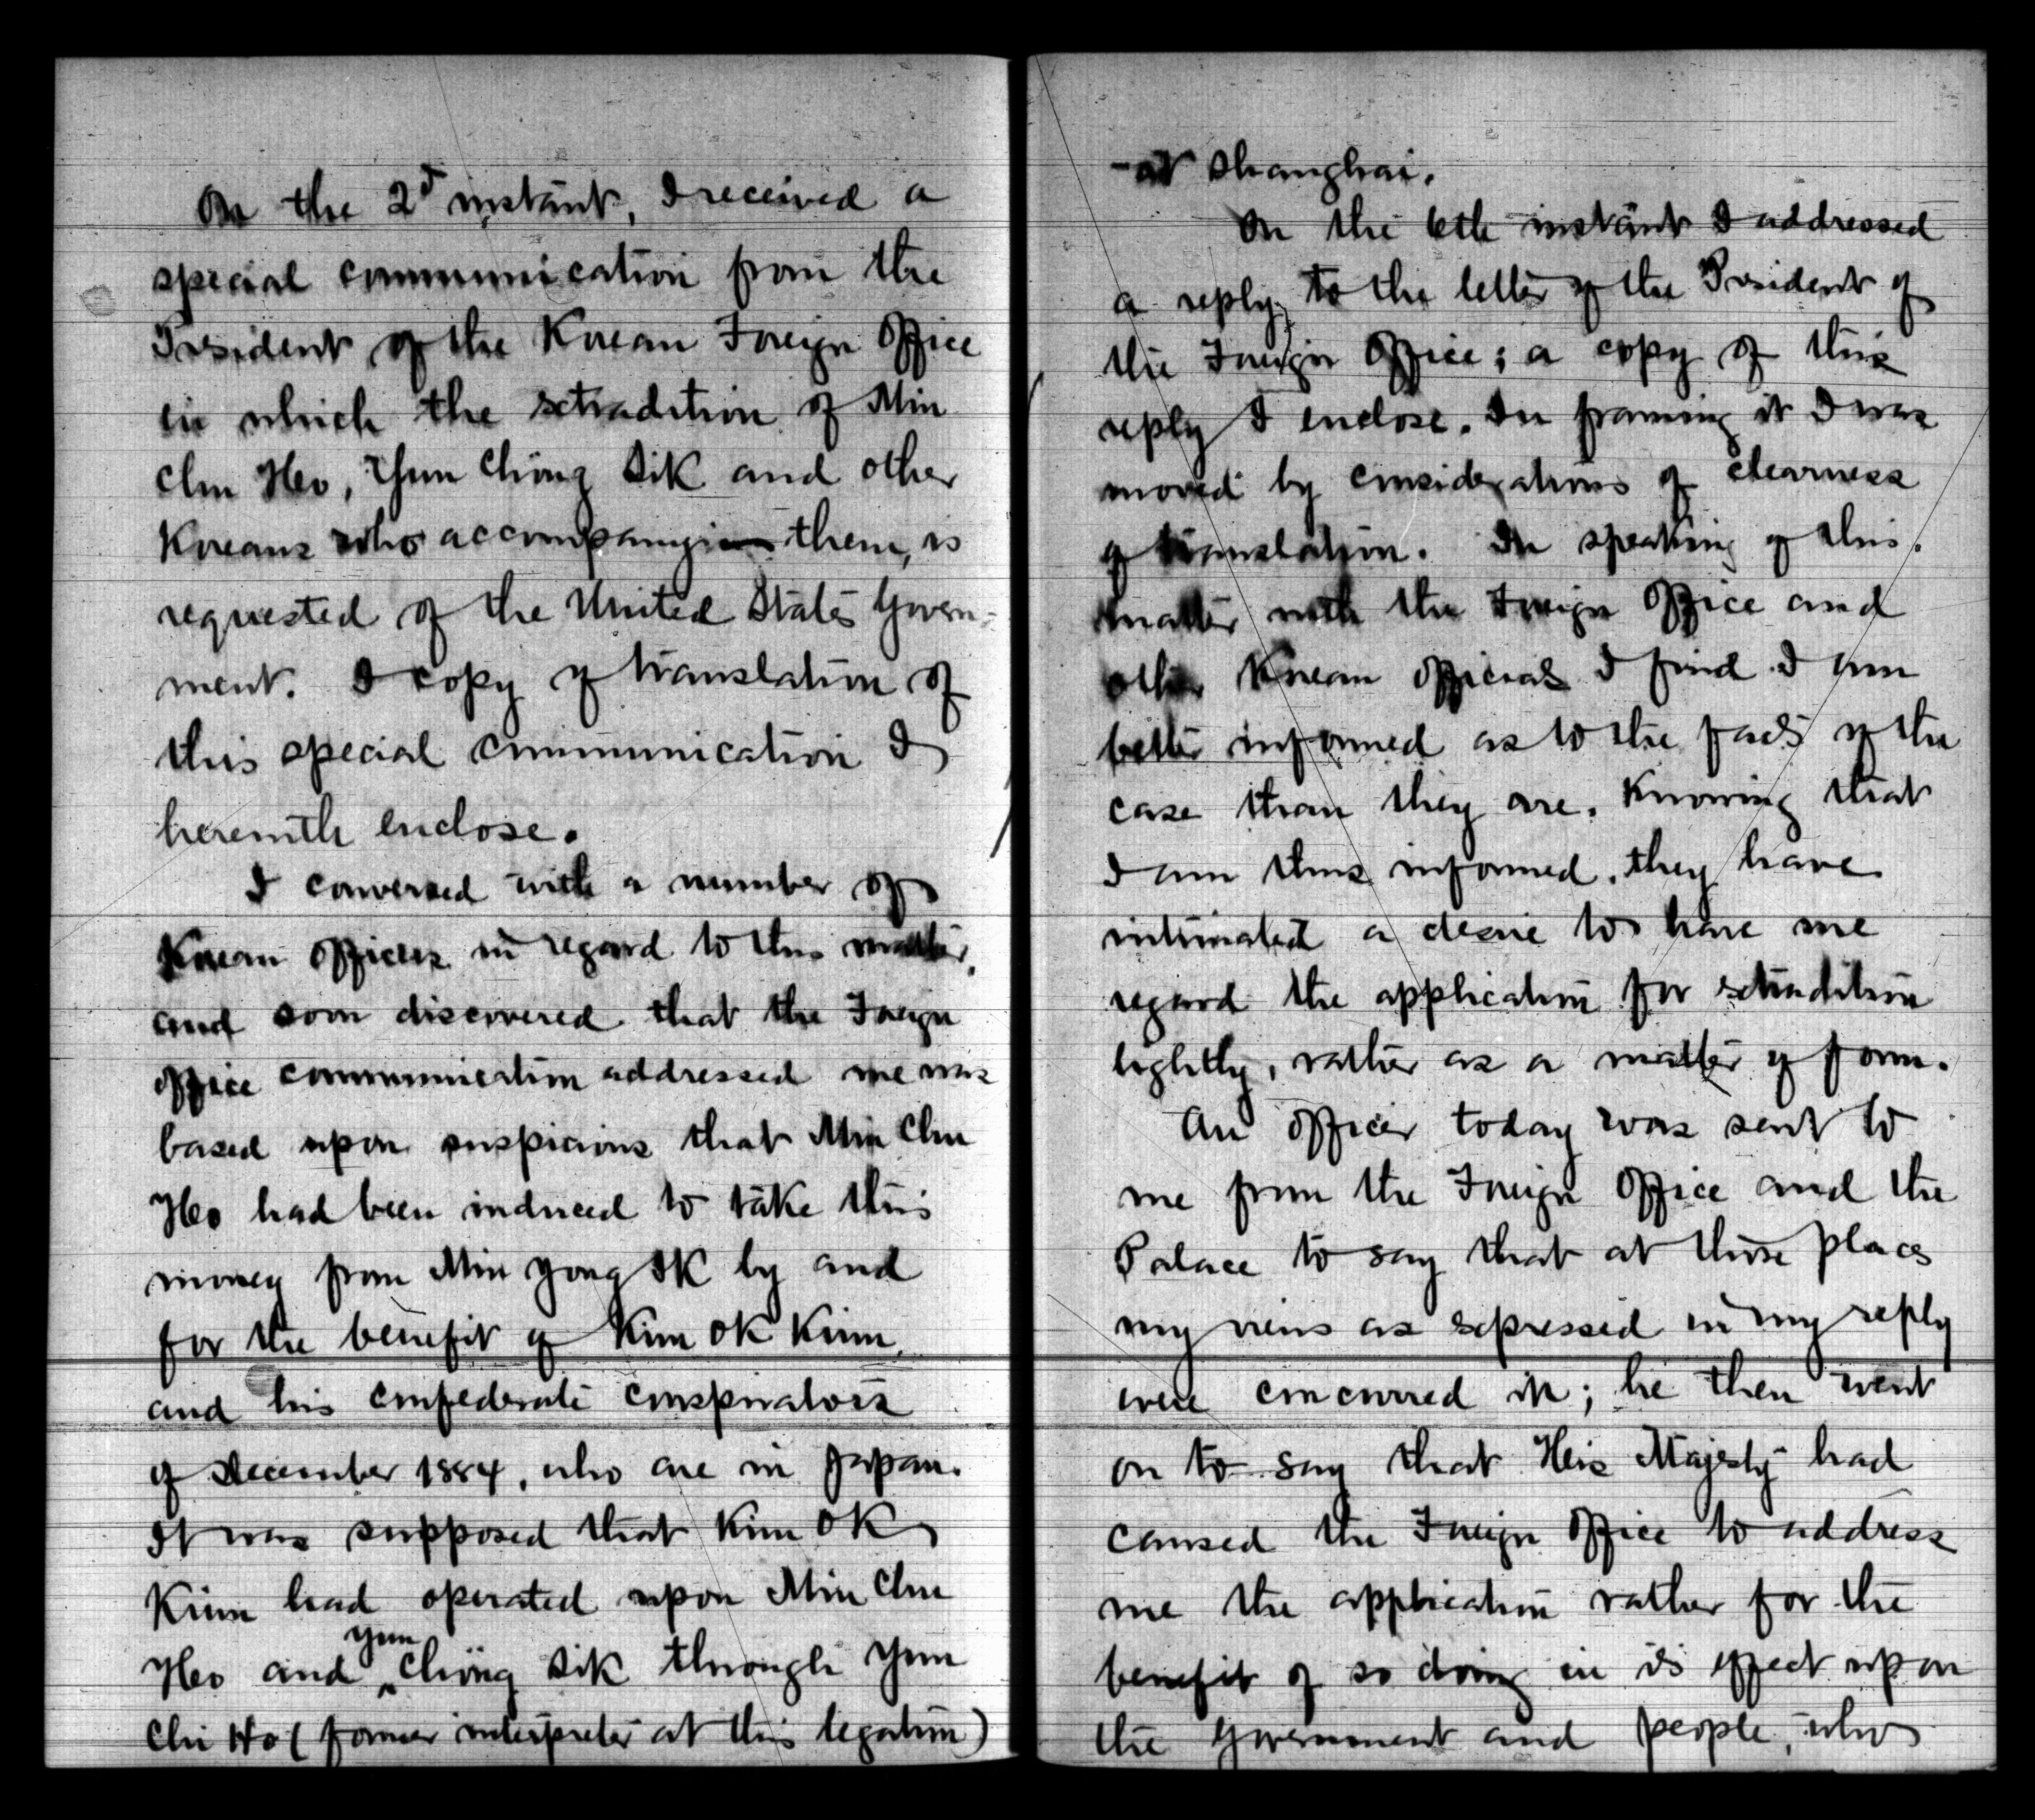 On the 2d instant, I received a
special communication from the
President of the Korean Foreign Office
in which the extradition of Min
Chu Ho, Yun Chöng Sik and other
Koreans who accompany them, is
requested of the United States Govern-
ment. A copy of translation of
this special communication I
herewith enclose.
I conversed with a number of
Korean officers in regard to this matter,
and soon discovered that the Foreign
Office communication addressed me was
based upon suspicions that Min Chu
Ho had been induced to take this
money from Min Yong Ik by and
for the benefit of Kim Ok Kiun
and his confederate conspirators
of December 1884, who are in Japan.
It was supposed that Kim Ok
Kiun had operated upon Min Chu
Ho and Yun Chöng Sik through Yun
Chi Ho (former interpreter at this legation)
-at Shanghai.
On the 6th instant I addressed
a reply to the letter of the President of
the Foreign Office; a copy of this
reply I enclose. In framing it I was
moved by considerations of clearness
of translation. In speaking of this
matter with the Foreign Office and
other Korean officials I find I am
better informed as to the facts of the
case than they are. Knowing that
I am thus informed, they have
intimated a desire to have me
regard the application for extradition
lightly, rather as a matter of form.
An officer today was sent to
me from the Foreign Office and the
Palace to say that at those places
my views as expressed in my reply
were concurred in; he then went
on to say that His Majesty had
caused the Foreign Office to address
me the application rather for the
benefit of so doing in its effect upon
the government and people, who